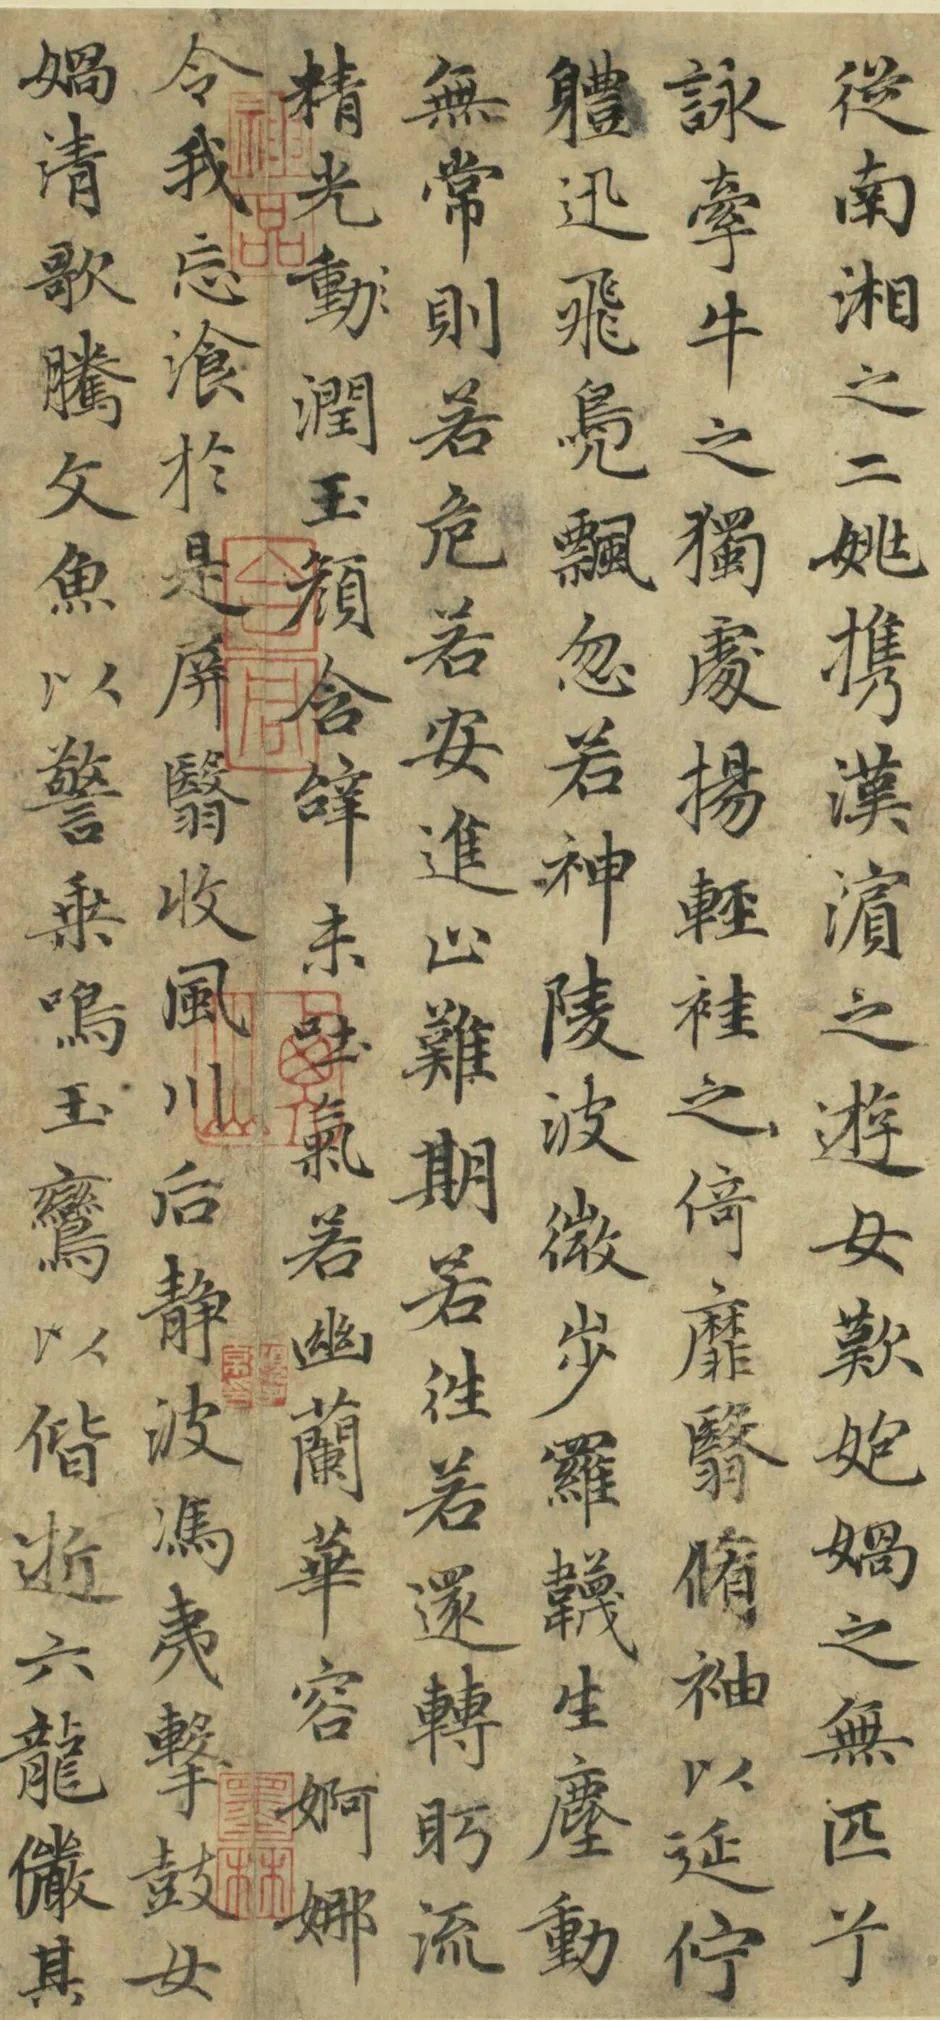 從南湘之二姚携漢濱之遊女歎㚿媧之無匹兮
詠牽牛之獨處揚輕袿之倚靡翳脩袖以延佇
軆迅飛鳧飄忽若神陵波微步羅韈生塵動
無常則若危若安進止難期若往若還轉眄流
精光動潤玉顏含辝未吐氣若幽蘭華容婀娜
令我忘飡於是屏翳收風川后静波馮夷擊鼓女
媧清歌騰文魚以警乘鳴玉鸞以偕逝六龍儼其
神品
墨林